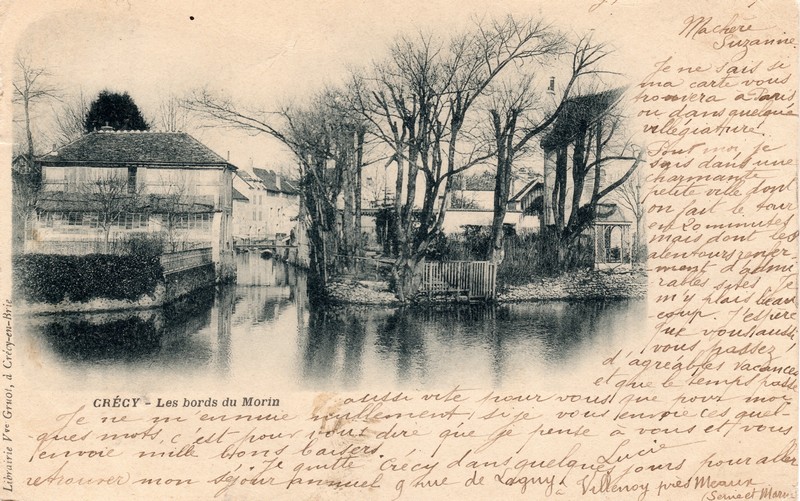 Ma chère
Suzanne.
Je ne sais si
ma carte vous
trouvera à Paris
ou dans quelque
villégiature!
Pour moi je
suis dans une
charmante
petite ville dont
on fait le tour
en 20 minutes
mais dont les
alentours renfer
ment d'admi
rables sites. Je
m'y plais beau
coup. J'espère
que vous aussi
vous passez
d'agréables vacances
et que le temps passe
aussi vite pour vous que pour moi
Je ne m'ennuie nullement, si je vous envoie ces quel-
ques mots, c'est pour vous dire que je pense à vous et vous
envoie mille bons baisers.
Lucie
Je quitte Crécy dans quelques jours pour aller
retrouver mon séjour annuel 9 rue de Lagny à Villenoy près Meaux
(Seine et Marne)
CRÉCY - Les bords du Morin
Librairie Vve Gruot, à Crécy-en-Brie